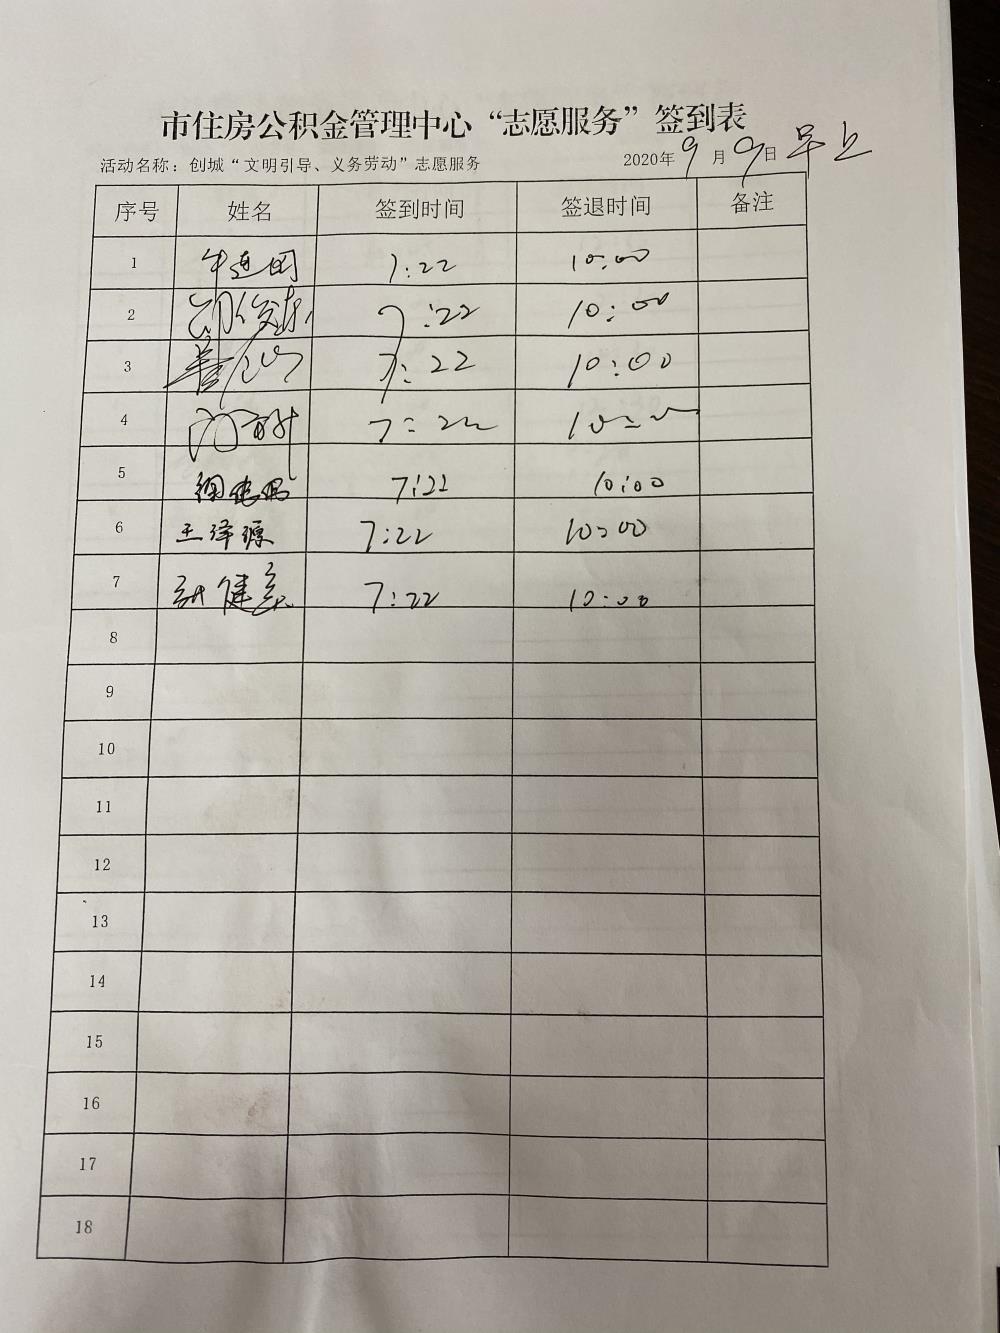 市住房公积金管理中心“志愿服务”签到表
活动名称：创城“文明引导、义务劳动”志愿服务 2020年9月9日 早上
序号 姓名 签到时间 签退时间 备注
1 牛连国 7:22 10:00
2 7:22 10:00
3 7:22 10:00
4 7:22 10:00
5 7:22 10:00
6 王泽源 7:22 10:00
7 7:22 10:00
8
9
10
11
12
13
14
15
16
17
18